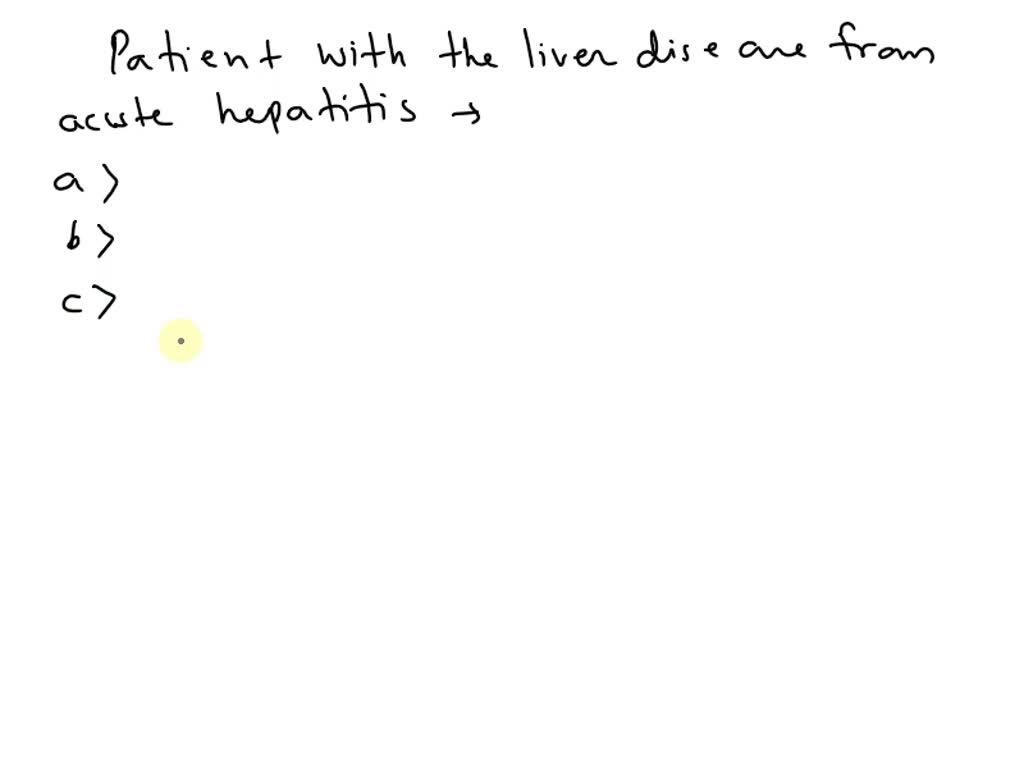 Patient with the liver disease from
acute hepatitis →
a >
b >
c >